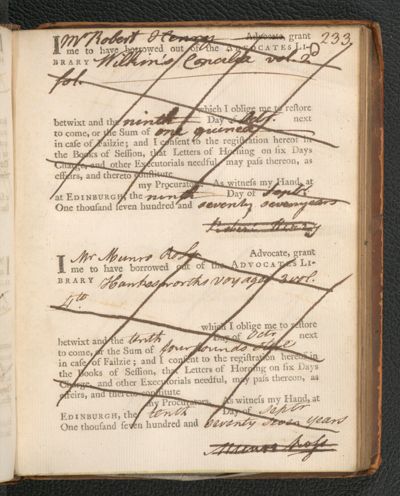 233
I Mr Robert Henry Advocate, grant
me to have borrowed out of the ADVOCATES LI-
BRARY Wilkin's Concilia vol. 2
fol.
which I oblige me to restore
betwixt and the ninth Day of Octr. next
to come, or the Sum of one guinea
in case of Failzie; and I consent to the registration hereof in
the Books of Session, that Letters of Horning on six Days
Charge, and other Executorials needful, may pass thereon, as
effeirs, and thereto constitute
my Procurators. As witness my Hand, at
at EDINBURGH, the ninth Day of Septr
One thousand seven hundred and seventy seven years
Robert Henry
I Mr Munro Ross Advocate, grant
me to have borrowed out of the ADVOCATES LI-
BRARY Hawkesworths voyages 3 vol.
4to
which I oblige me to restore
betwixt and the tenth Day of Octr next
to come, or the Sum of four pounds
in case of Failzie; and I consent to the registration hereof in
the Books of Session, that Letters of Horning on six Days
Charge, and other Executorials needful, may pass thereon, as
effeirs, and thereto constitute
my Procurators. As witness my Hand, at
EDINBURGH, the tenth Day of Septr
One thousand seven hundred and seventy seven years
Munro Ross